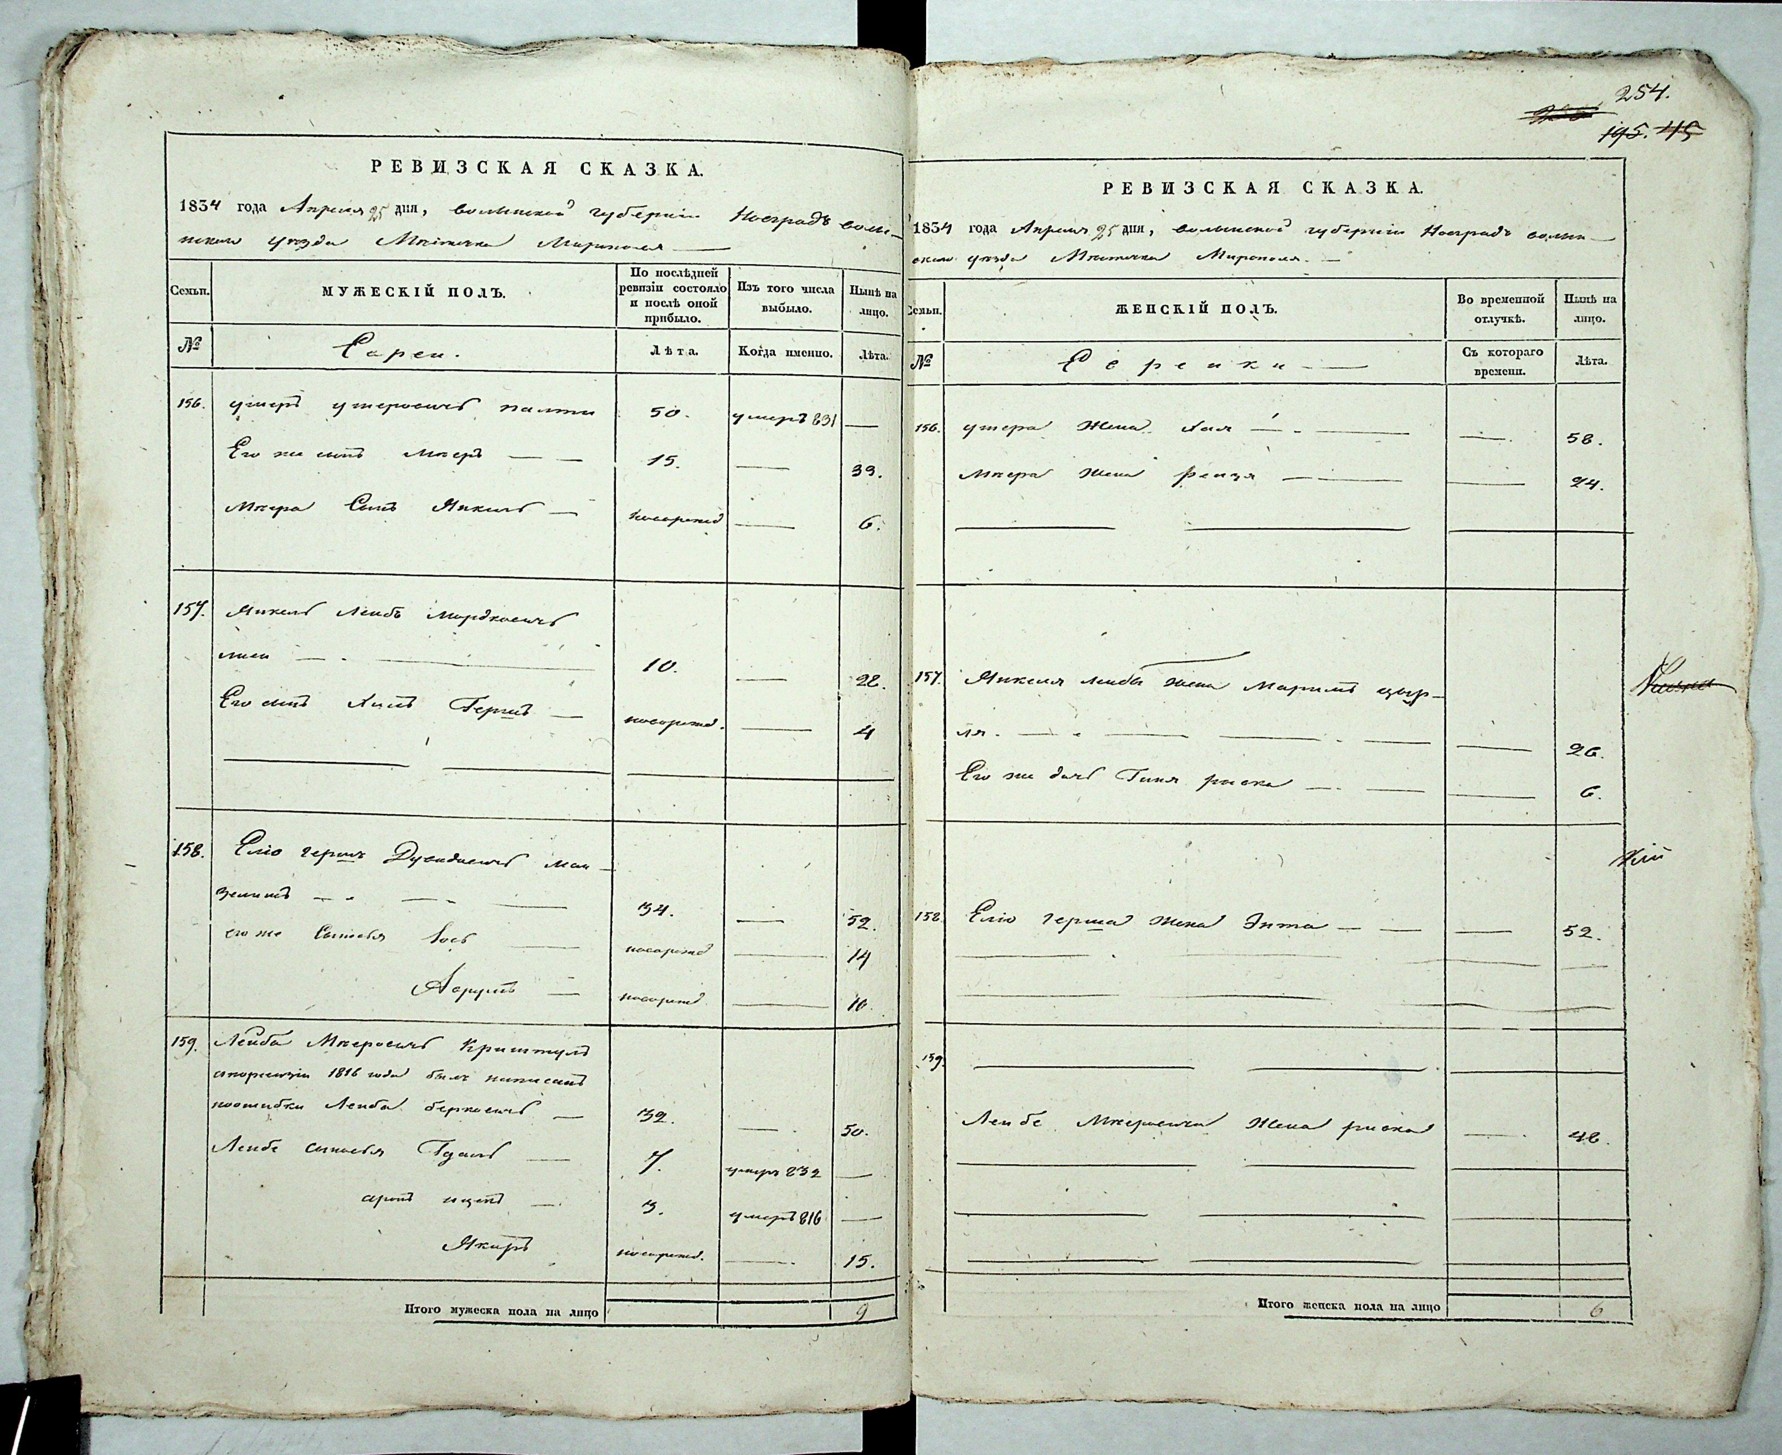 РЕВИЗСКАЯ СКАЗКА.
1834 года Апреля 25 дня, волынской губернiи Новградъ волын-
скаго уѣзда Мѣстечка Мирополя
Семьи.
МУЖЕСКIЙ ПОЛЪ.
По послѣдней ревизiи состояло и послѣ оной прибыло.
Изъ того числа выбыло.
Нынѣ на лицо.
№
Евреи.
Лѣта.
Когда именно.
Лѣта.
156. умеръ 831
50.
Его же сынъ Меер 15. 33.
Меера Сынъ Янкель новорожд 6.
157. Янкель Лейбъ Мордковичъ
10. 28.
Его сынъ Хаимъ Гершъ новорожд. 4
158. Елiо гершъ Дувидовичъ
34. 52.
его же Сыновья Iось новорожд 14
новорожд 10.
159. Лейба Мееровичъ Криштулъ
поревизiи 1816 года былъ написанъ
поошибки Лейба берковичъ 32. 50.
Лейбе сыновья 7. умеръ 832
3. умеръ 816
новорожд. 15.
Итого мужеска пола на лицо 9
254.
195. 45
РЕВИЗСКАЯ СКАЗКА.
1834 года Апреля 25 дня, волынской губернiи Новградъ волын-
скаго уѣзда Мѣстечка Мирополя.
Семьи.
ЖЕНСКIЙ ПОЛЪ.
Во временной отлучкѣ.
Нынѣ на лицо.
№
Еврейки
Съ котораго времени.
Лѣта.
156. жена Хая 58.
Меера жена Рейзя 24.
157. Янкеля лейбы жена Маримъ цыр-
ля. 26.
Его же дочь Гиня риска 6.
158 Елiо герша жена Энта 52.
159.
Лейбе Мееровича жена риска 48.
Итого женска пола на лицо 6